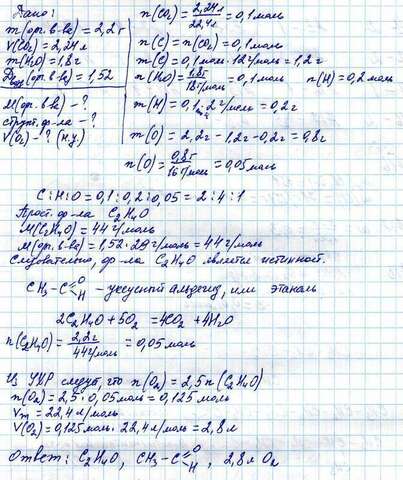 Дано:
m(орг. в-ва) = 2,2 г
V(CO₂) = 2,24 л
m(H₂O) = 1,8 г
D возд (орг. в-ва) = 1,52
M(орг. в-ва) - ?
структ. ф-ла - ?
V(O₂) - ? (н.у.)
n(CO₂) = 2,24л/22,4л = 0,1 моль
n(C) = n(CO₂) = 0,1 моль
m(C) = 0,1 моль · 12 г/моль = 1,2 г
n(H₂O) = 1,8г/18г/моль = 0,1 моль n(H) = 0,2 моль
m(H) = 0,1 · 2 г/моль = 0,2 г
m(O) = 2,2г - 1,2г - 0,2г = 0,8г
n(O) = 0,8г/16г/моль = 0,05 моль
C : H : O = 0,1 : 0,2 : 0,05 = 2 : 4 : 1
Прост. ф-ла C₂H₄O
M(C₂H₄O) = 44 г/моль
M(орг. в-ва) = 1,52 · 29 г/моль = 44 г/моль
Следовательно, ф-ла C₂H₄O является истинной.
CH₃ - C =O - H - уксусный альдегид, или этаналь
2C₂H₄O + 5O₂ = 4CO₂ + 4H₂O
n(C₂H₄O) = 2,2г/44г/моль = 0,05 моль
Из УХР следует, что n(O₂) = 2,5 n(C₂H₄O)
n(O₂) = 2,5 · 0,05 моль = 0,125 моль
Vm = 22,4 л/моль
V(O₂) = 0,125 моль · 22,4 л/моль = 2,8 л
Ответ: C₂H₄O, CH₃ - C =O - H , 2,8 л O₂